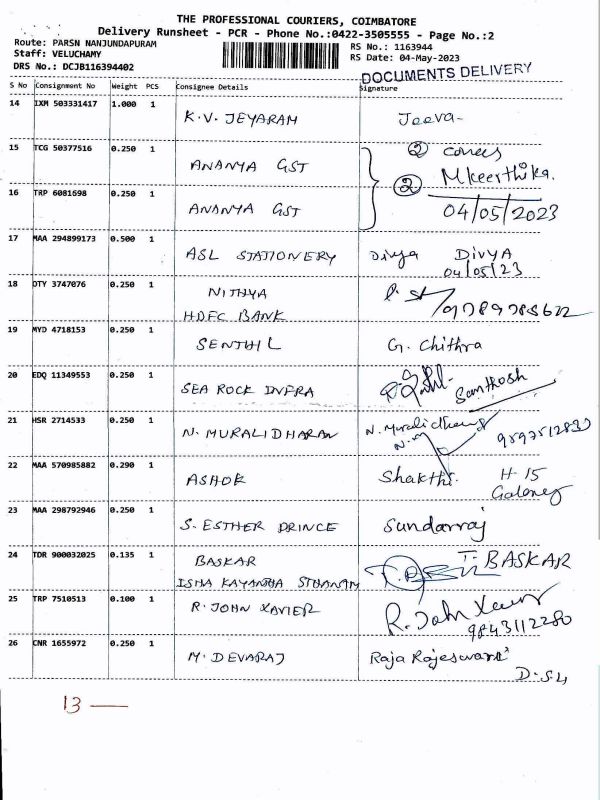 THE PROFESSIONAL COURIERS, COIMBATORE
Delivery Runsheet - PCR - Phone No.:0422-3505555 - Page No.:2
Route: PARSN NANJUNDAPURAM
RS No.: 1163944
Staff: VELUCHAMY
RS Date: 04-May-2023
DRS No.: DCJB116394402
DOCUMENTS DELIVERY
S No Consignment No Weight PCS Consignee Details Signature
14 IXM 503331417 1.000 1 K.V. JEYARAM Jeeva-
15 TCG 50377516 0.250 1 ANANYA GST ② covers
② M Keerthika.
16 TRP 6081698 0.250 1 ANANYA GST 04/05/2023
17 MAA 294899173 0.500 1 ASL STATIONERY Divya DIVYA
04/05/23
18 OTY 3747076 0.250 1 NITHYA
HDFC BANK
19 MYD 4718153 0.250 1 SENTHIL G. Chithra
20 EDQ 11349553 0.250 1 SEA ROCK INFRA Santhosh
21 HSR 2714533 0.250 1 N. MURALIDHARAN N. Muralidharan
22 MAA 570985882 0.290 1 ASHOK Shakthi. H 15
23 MAA 298792946 0.250 1 S. ESTHER PRINCE Sundarraj
24 TDR 900032025 0.135 1 BASKAR T. BASKAR
ISHA KAYANTHA STHANAM
25 TRP 7510513 0.100 1 R. JOHN XAVIER R. John Xavier
9843112280
26 CNR 1655972 0.250 1 M. DEVARAJ Raja Rajeswari
13 —